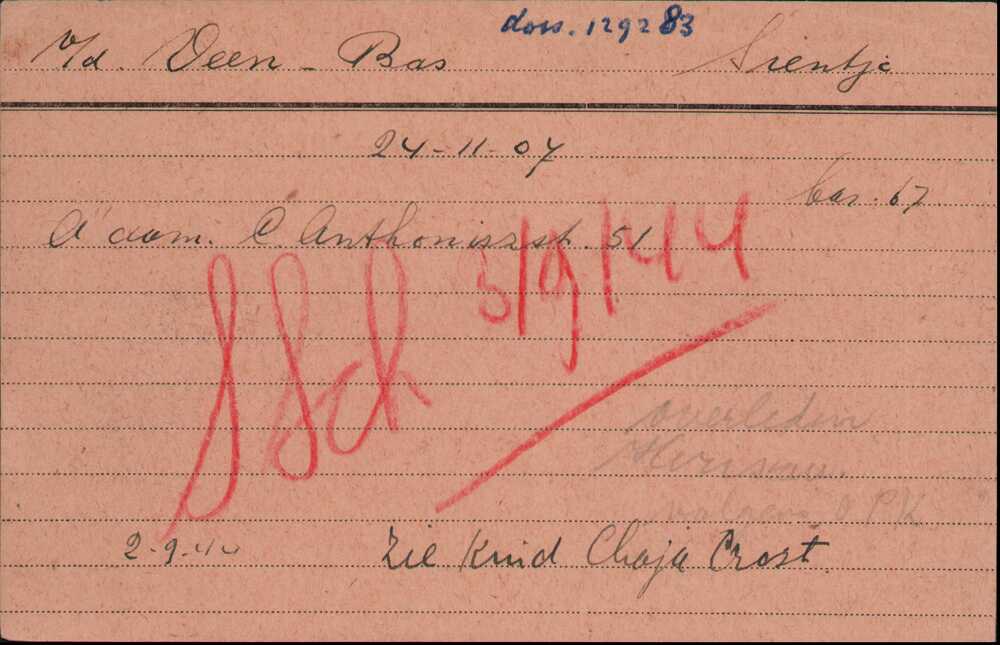 doss. 129283
v/d. Veen - Bas Sientje
24-11-07
bar. 67
A'dam. C. Anthoniszst. 51
SSch 3/9/44
overleden
volgens O P K
2-9-44 Zie Kind Chaja Crost.